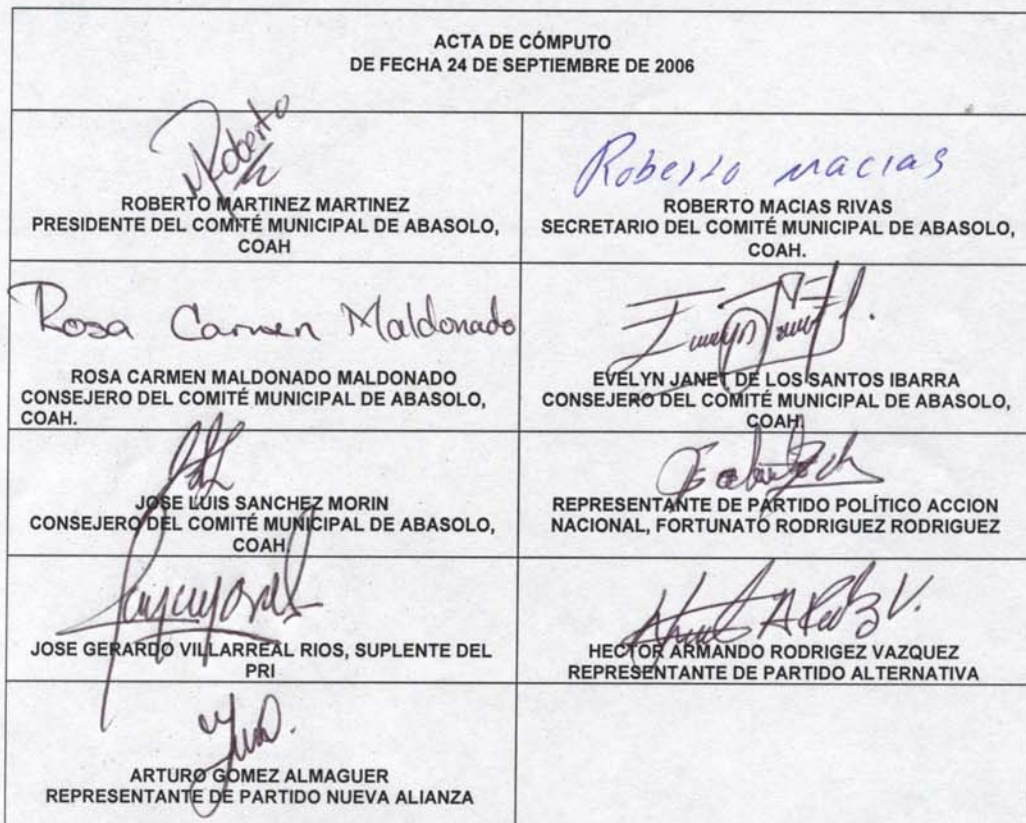 ACTA DE CÓMPUTO
DE FECHA 24 DE SEPTIEMBRE DE 2006
Roberto
ROBERTO MARTINEZ MARTINEZ
PRESIDENTE DEL COMITÉ MUNICIPAL DE ABASOLO,
COAH
Roberto macias
ROBERTO MACIAS RIVAS
SECRETARIO DEL COMITÉ MUNICIPAL DE ABASOLO,
COAH.
Rosa Carmen Maldonado
ROSA CARMEN MALDONADO MALDONADO
CONSEJERO DEL COMITÉ MUNICIPAL DE ABASOLO,
COAH.
EVELYN JANET DE LOS SANTOS IBARRA
CONSEJERO DEL COMITÉ MUNICIPAL DE ABASOLO,
COAH.
JOSE LUIS SANCHEZ MORIN
CONSEJERO DEL COMITÉ MUNICIPAL DE ABASOLO,
COAH.
REPRESENTANTE DE PARTIDO POLÍTICO ACCION
NACIONAL, FORTUNATO RODRIGUEZ RODRIGUEZ
JOSE GERARDO VILLARREAL RIOS, SUPLENTE DEL
PRI
HECTOR ARMANDO RODRIGEZ VAZQUEZ
REPRESENTANTE DE PARTIDO ALTERNATIVA
ARTURO GOMEZ ALMAGUER
REPRESENTANTE DE PARTIDO NUEVA ALIANZA